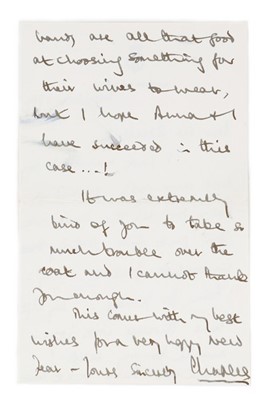 bands are all that good
at choosing something for
their wives to wear,
but I hope Anna & I
have succeeded in this
case...!
It was extremely
kind of you to take so
much trouble over the
coat and I cannot thank
you enough.
This comes with my best
wishes for a very happy New
Year - Yours sincerely Charles